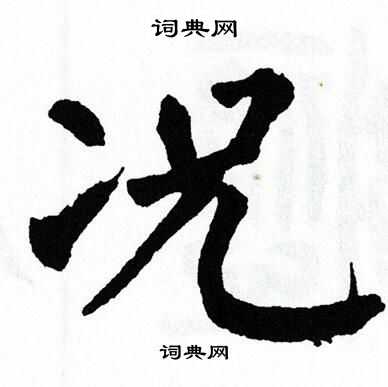 词典网
况
词典网